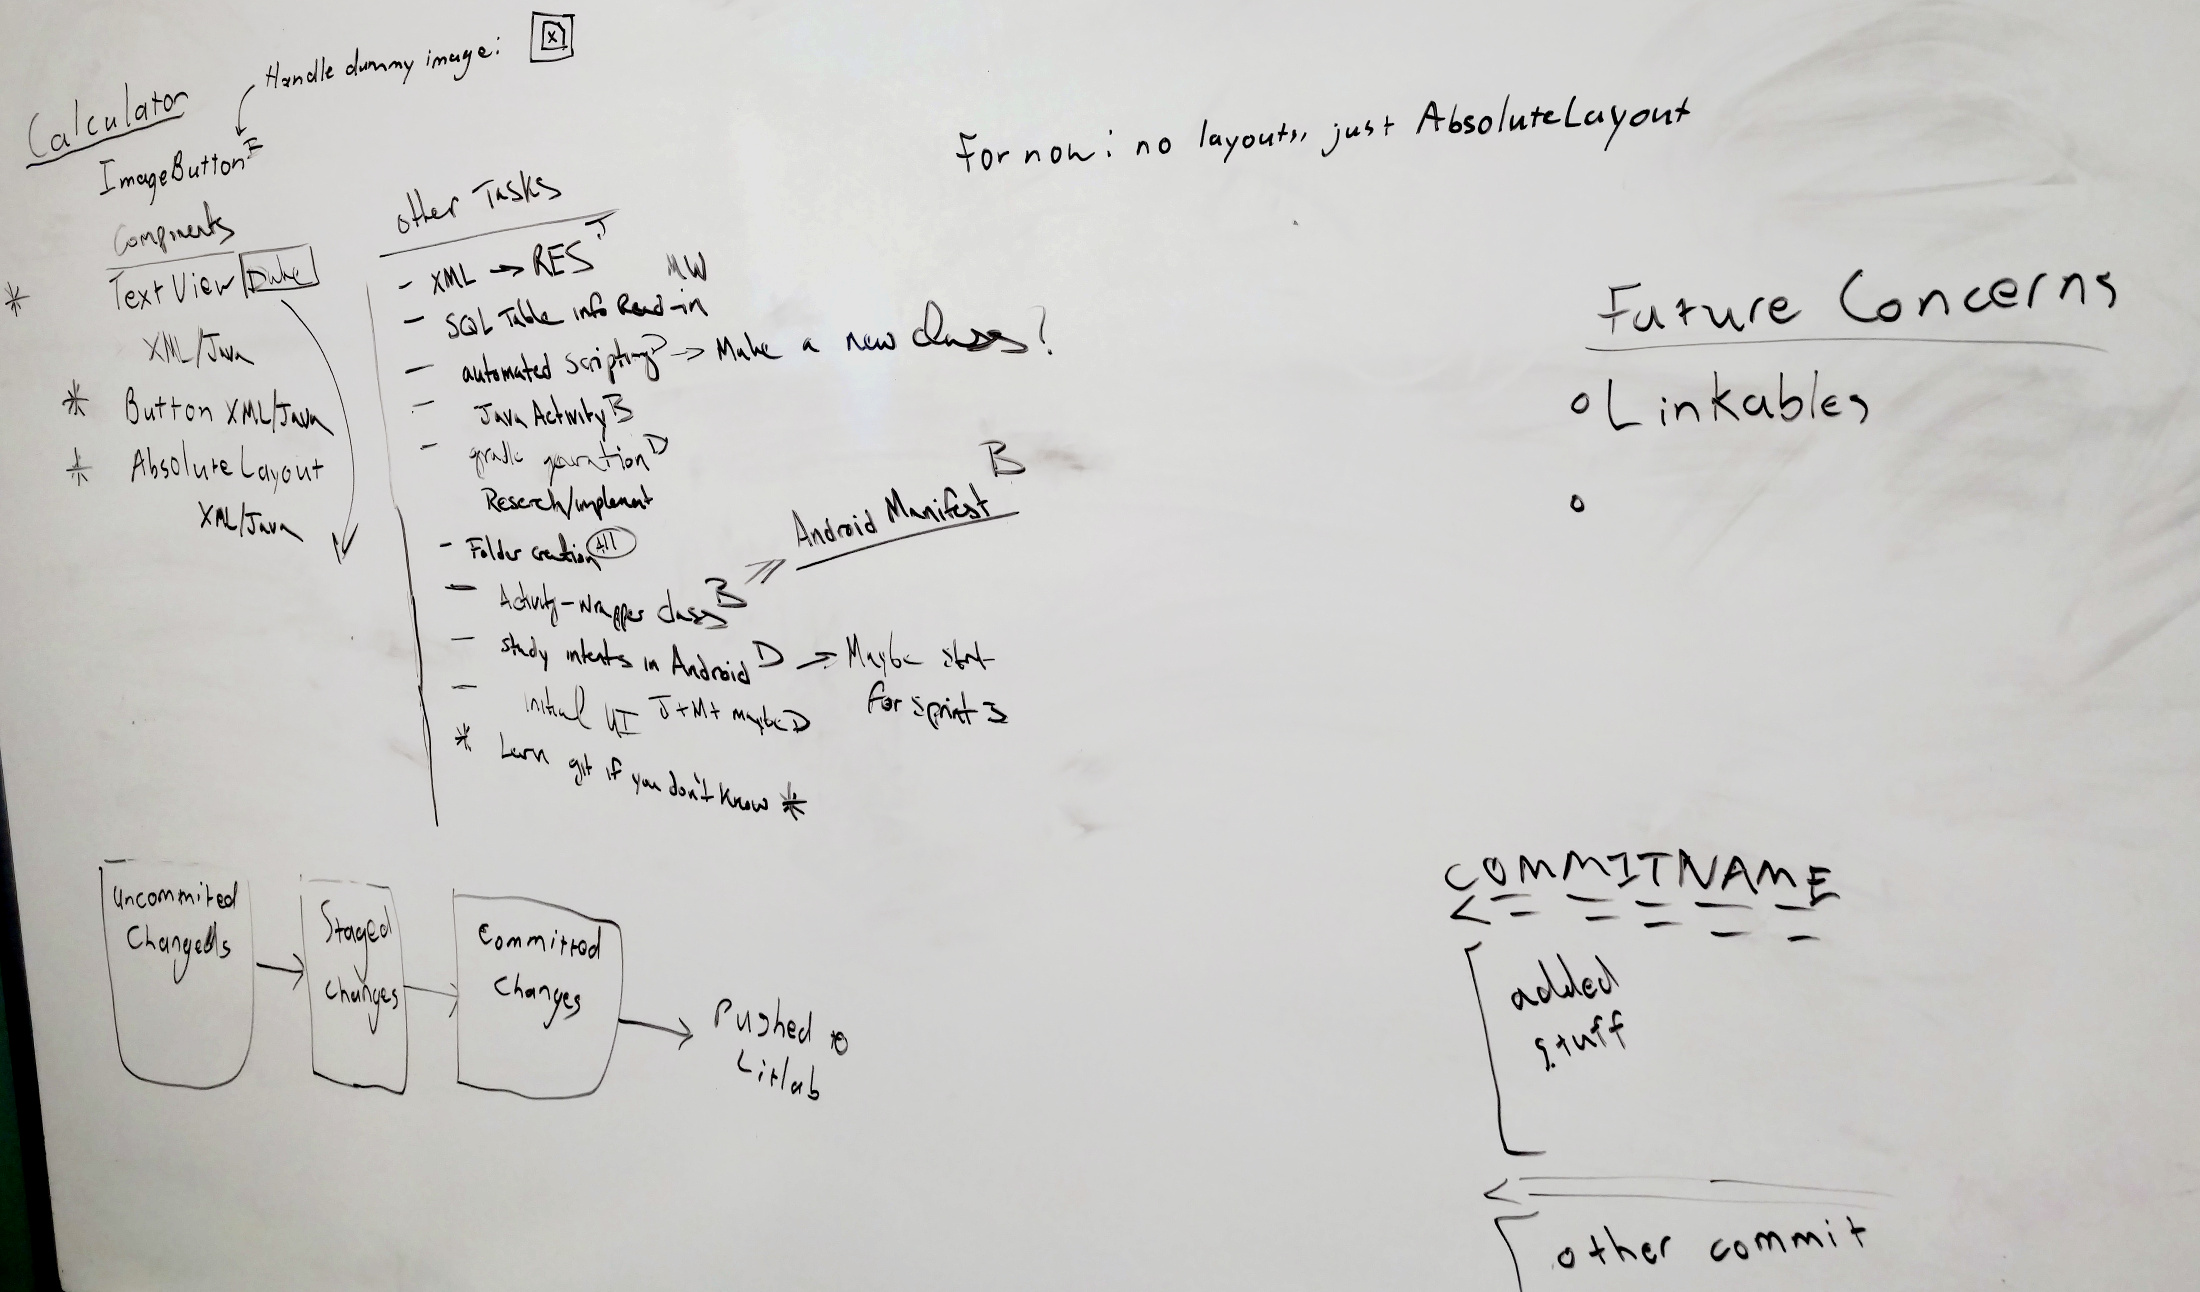 Handle dummy image: x
Calculator
ImageButton
For now: no layouts, just AbsoluteLayout
Components
* TextView
XML/Java
* Button XML/Java
* AbsoluteLayout
XML/Java
other Tasks
- XML → RES J
MW
- SQL Table info Read-in
- automated scripting D → Make a new class?
- Java Activity B
- gradle D
Reserch/implement
- Folder creation All
- Activity-wrapper class B
Android Manifest B
- study intents in Android D → Maybe start
for sprint 3
- initial UI J+M+ maybe D
* Learn git if you don't know *
Future Concerns
o Linkables
o
Uncommited
Staged
changes
Committed
Changes
Pushed to
Litlab
COMMITNAME
added
stuff
other commit